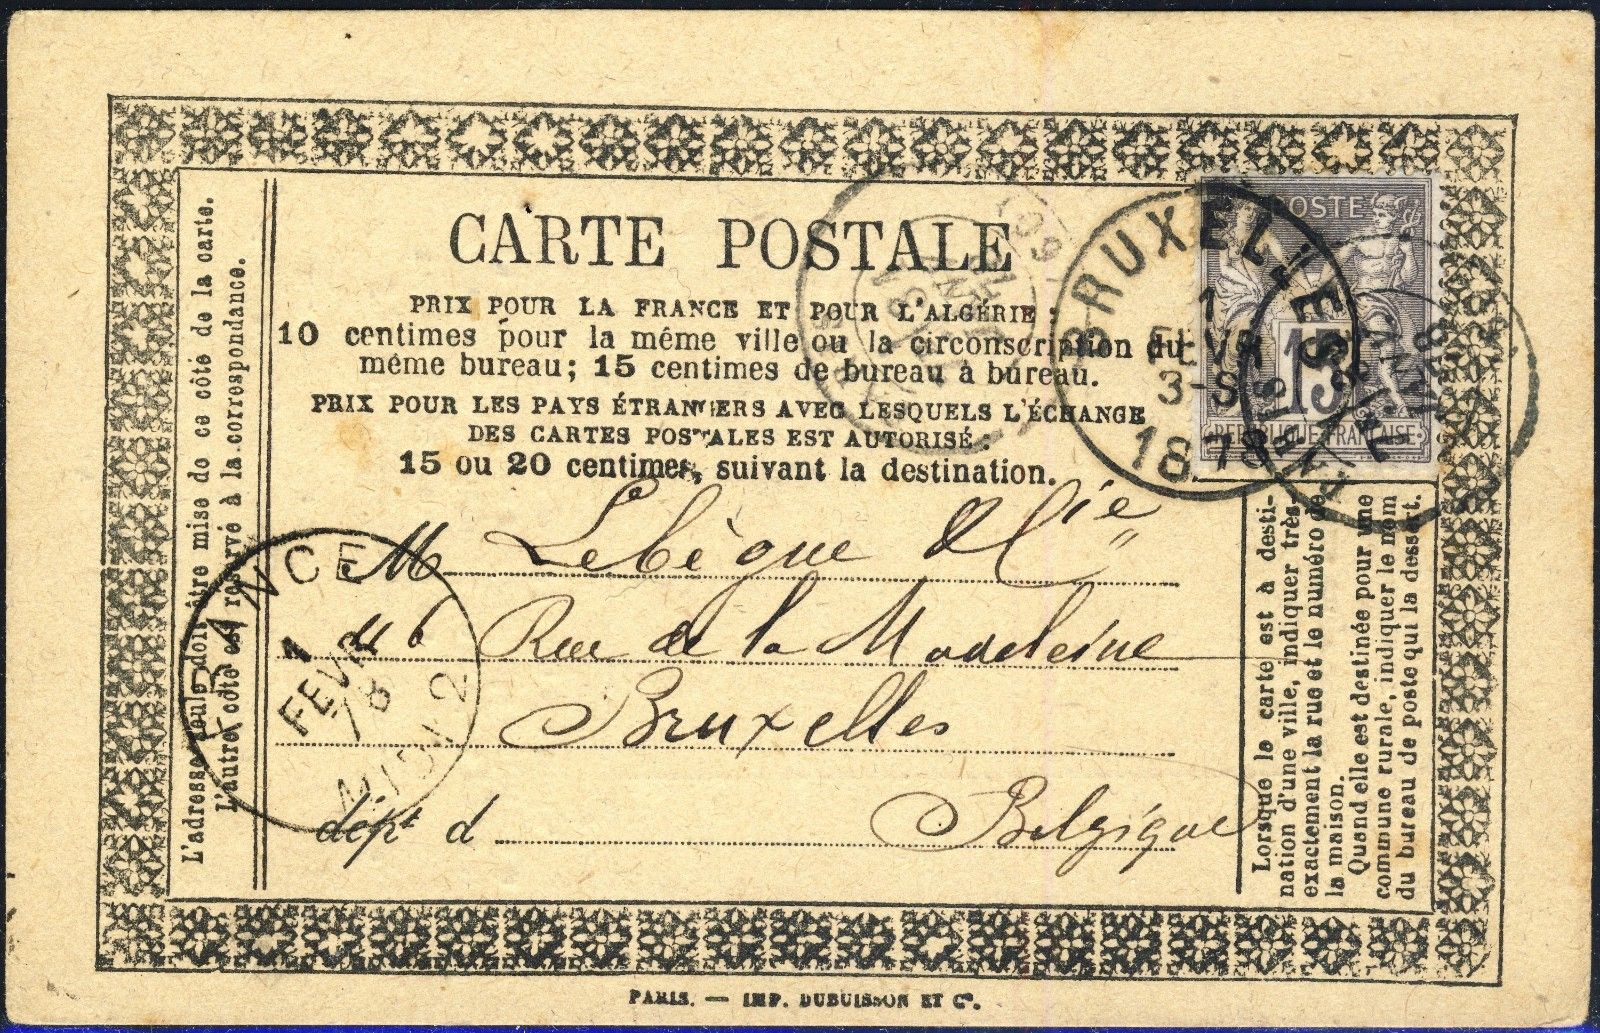 CARTE POSTALE
PRIX POUR LA FRANCE ET POUR L'ALGÉRIE :
10 centimes pour la même ville ou la circonscription du
même bureau; 15 centimes de bureau à bureau.
PRIX POUR LES PAYS ÉTRANGERS AVEC LESQUELS L'ÉCHANGE
DES CARTES POSTALES EST AUTORISÉ :
15 ou 20 centimes, suivant la destination.
POSTE
15
REPUBLIQUE FRANÇAISE
BRUXELLES
1
FEVR
3-S
1878
M Lebègue & Cie
46 Rue de la Madeleine
Bruxelles
dépt d Belgique
FRANCE
1
FEVR
78
MIDI 2
L'adresse seule doit être mise de ce côté de la carte.
L'autre côté est réservé à la correspondance.
Lorsque la carte est à desti-
nation d'une ville, indiquer très-
exactement la rue et le numéro de
la maison.
Quand elle est destinée pour une
commune rurale, indiquer le nom
du bureau de poste qui la dessert.
PARIS. — IMP. DUBUISSON ET Cᵉ.